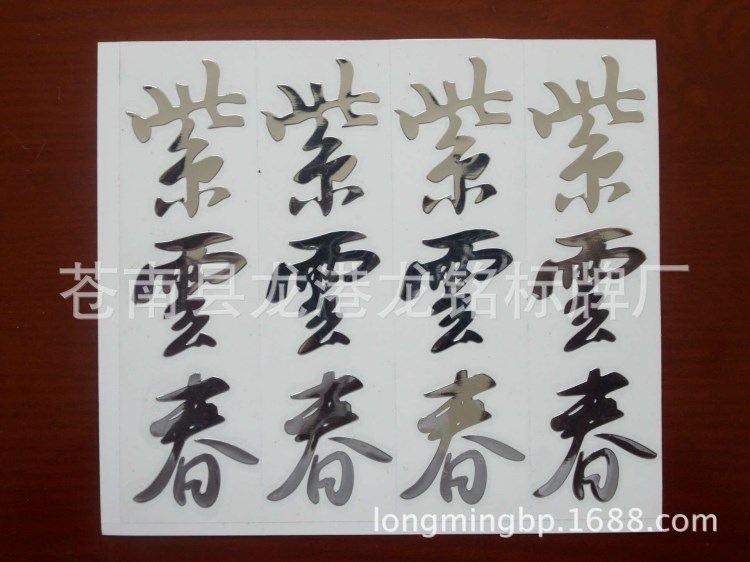 紫雲春
紫雲春
紫雲春
紫雲春
苍南县龙港龙铭标牌厂
longmingbp.1688.com